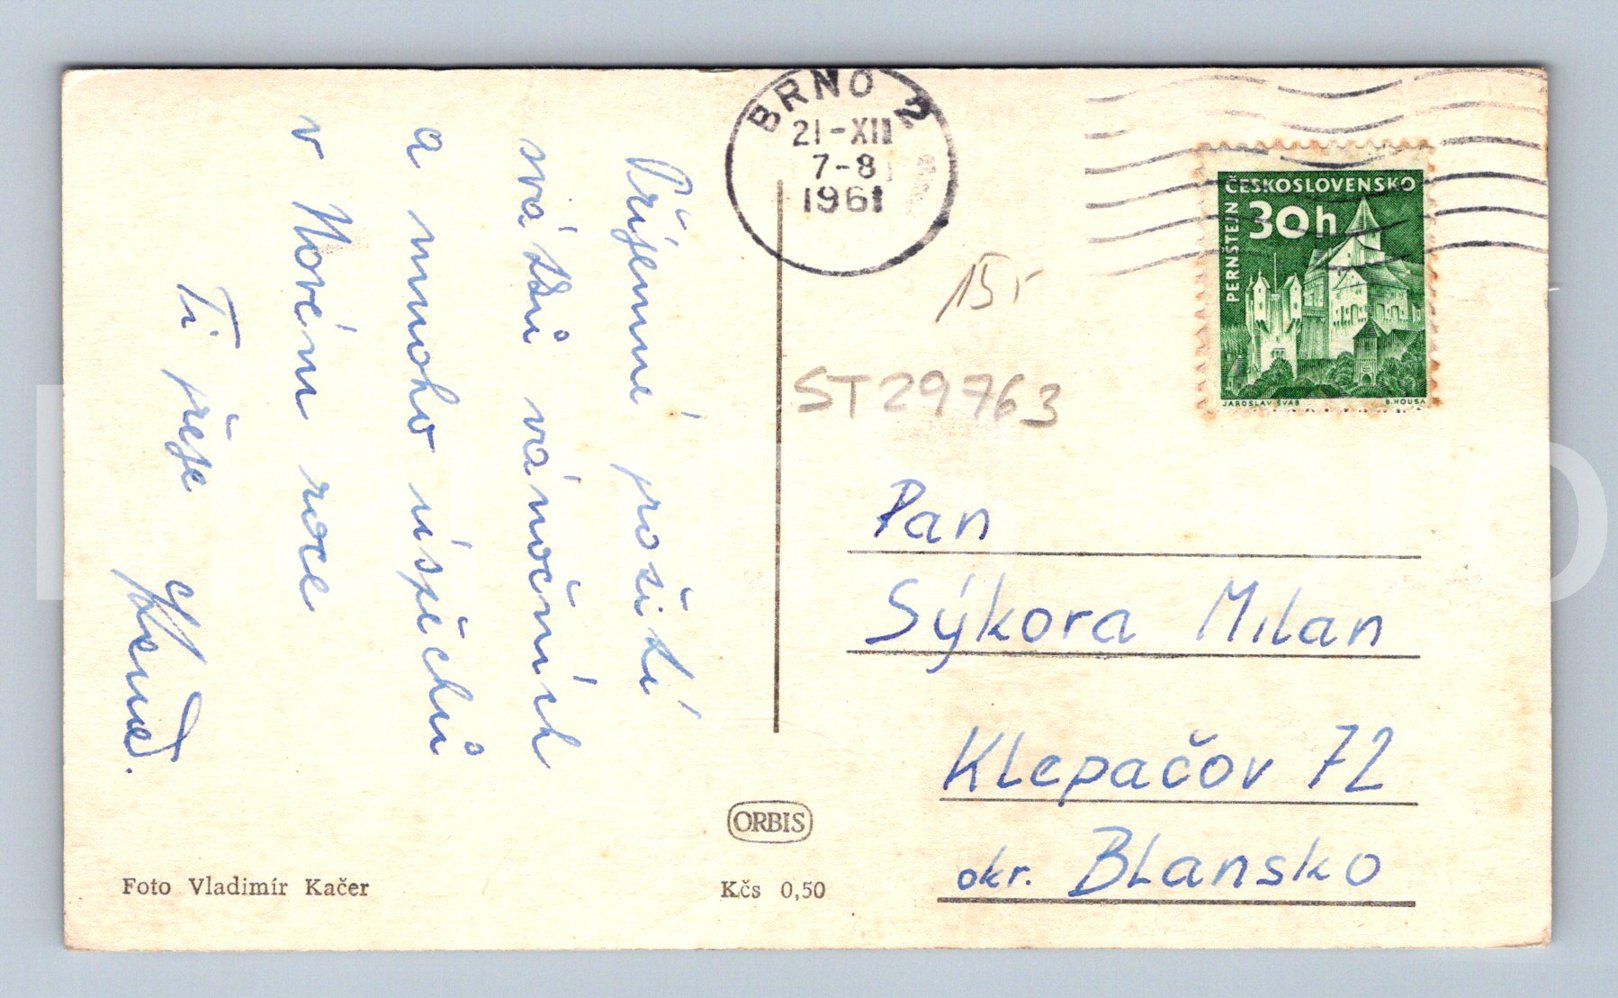 BRNO 2
21-XII
7-8
1961
ČESKOSLOVENSKO
30h
PERNŠTEJN
JAROSLAV ŠVÁB
B. HOUSA
15,-
ST29763
Příjemné prožití
svátků vánočních
a mnoho úspěchů
v Novém roce
Ti přeje
Pan
Sýkora Milan
Klepačov 72
okr. Blansko
ORBIS
Foto Vladimír Kačer
Kčs 0,50